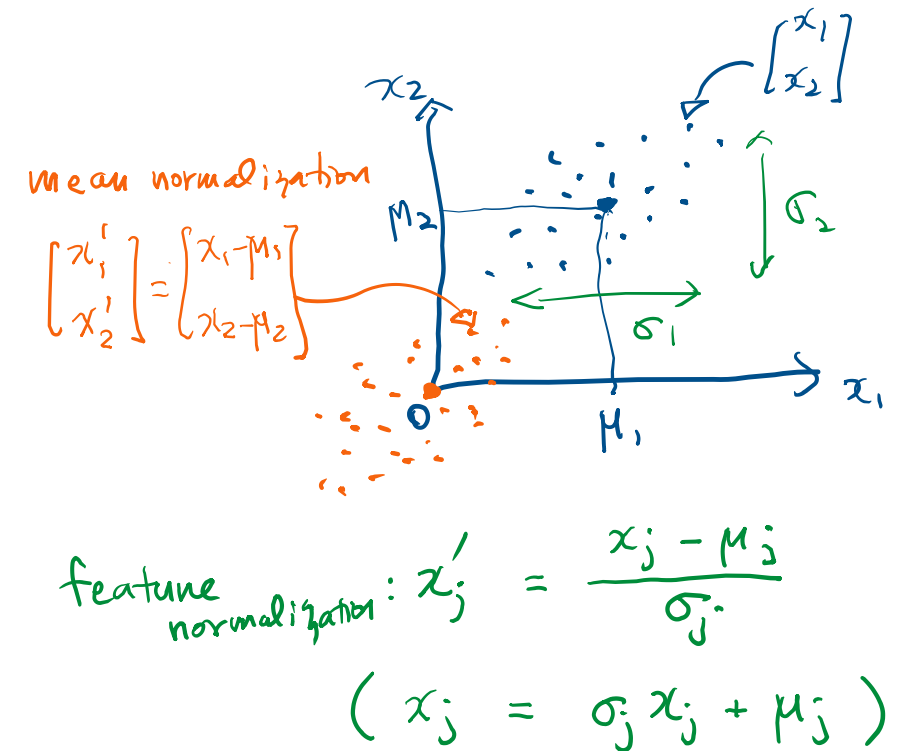 [x₁
x₂]
x₂
mean normalization
[x₁'
x₂'] = [x₁-μ₁
x₂-μ₂]
μ₂
σ₂
σ₁
0
μ₁
x₁
featune
normalization : x'ⱼ = (xⱼ - μⱼ) / σⱼ
( xⱼ = σⱼ xⱼ + μⱼ )